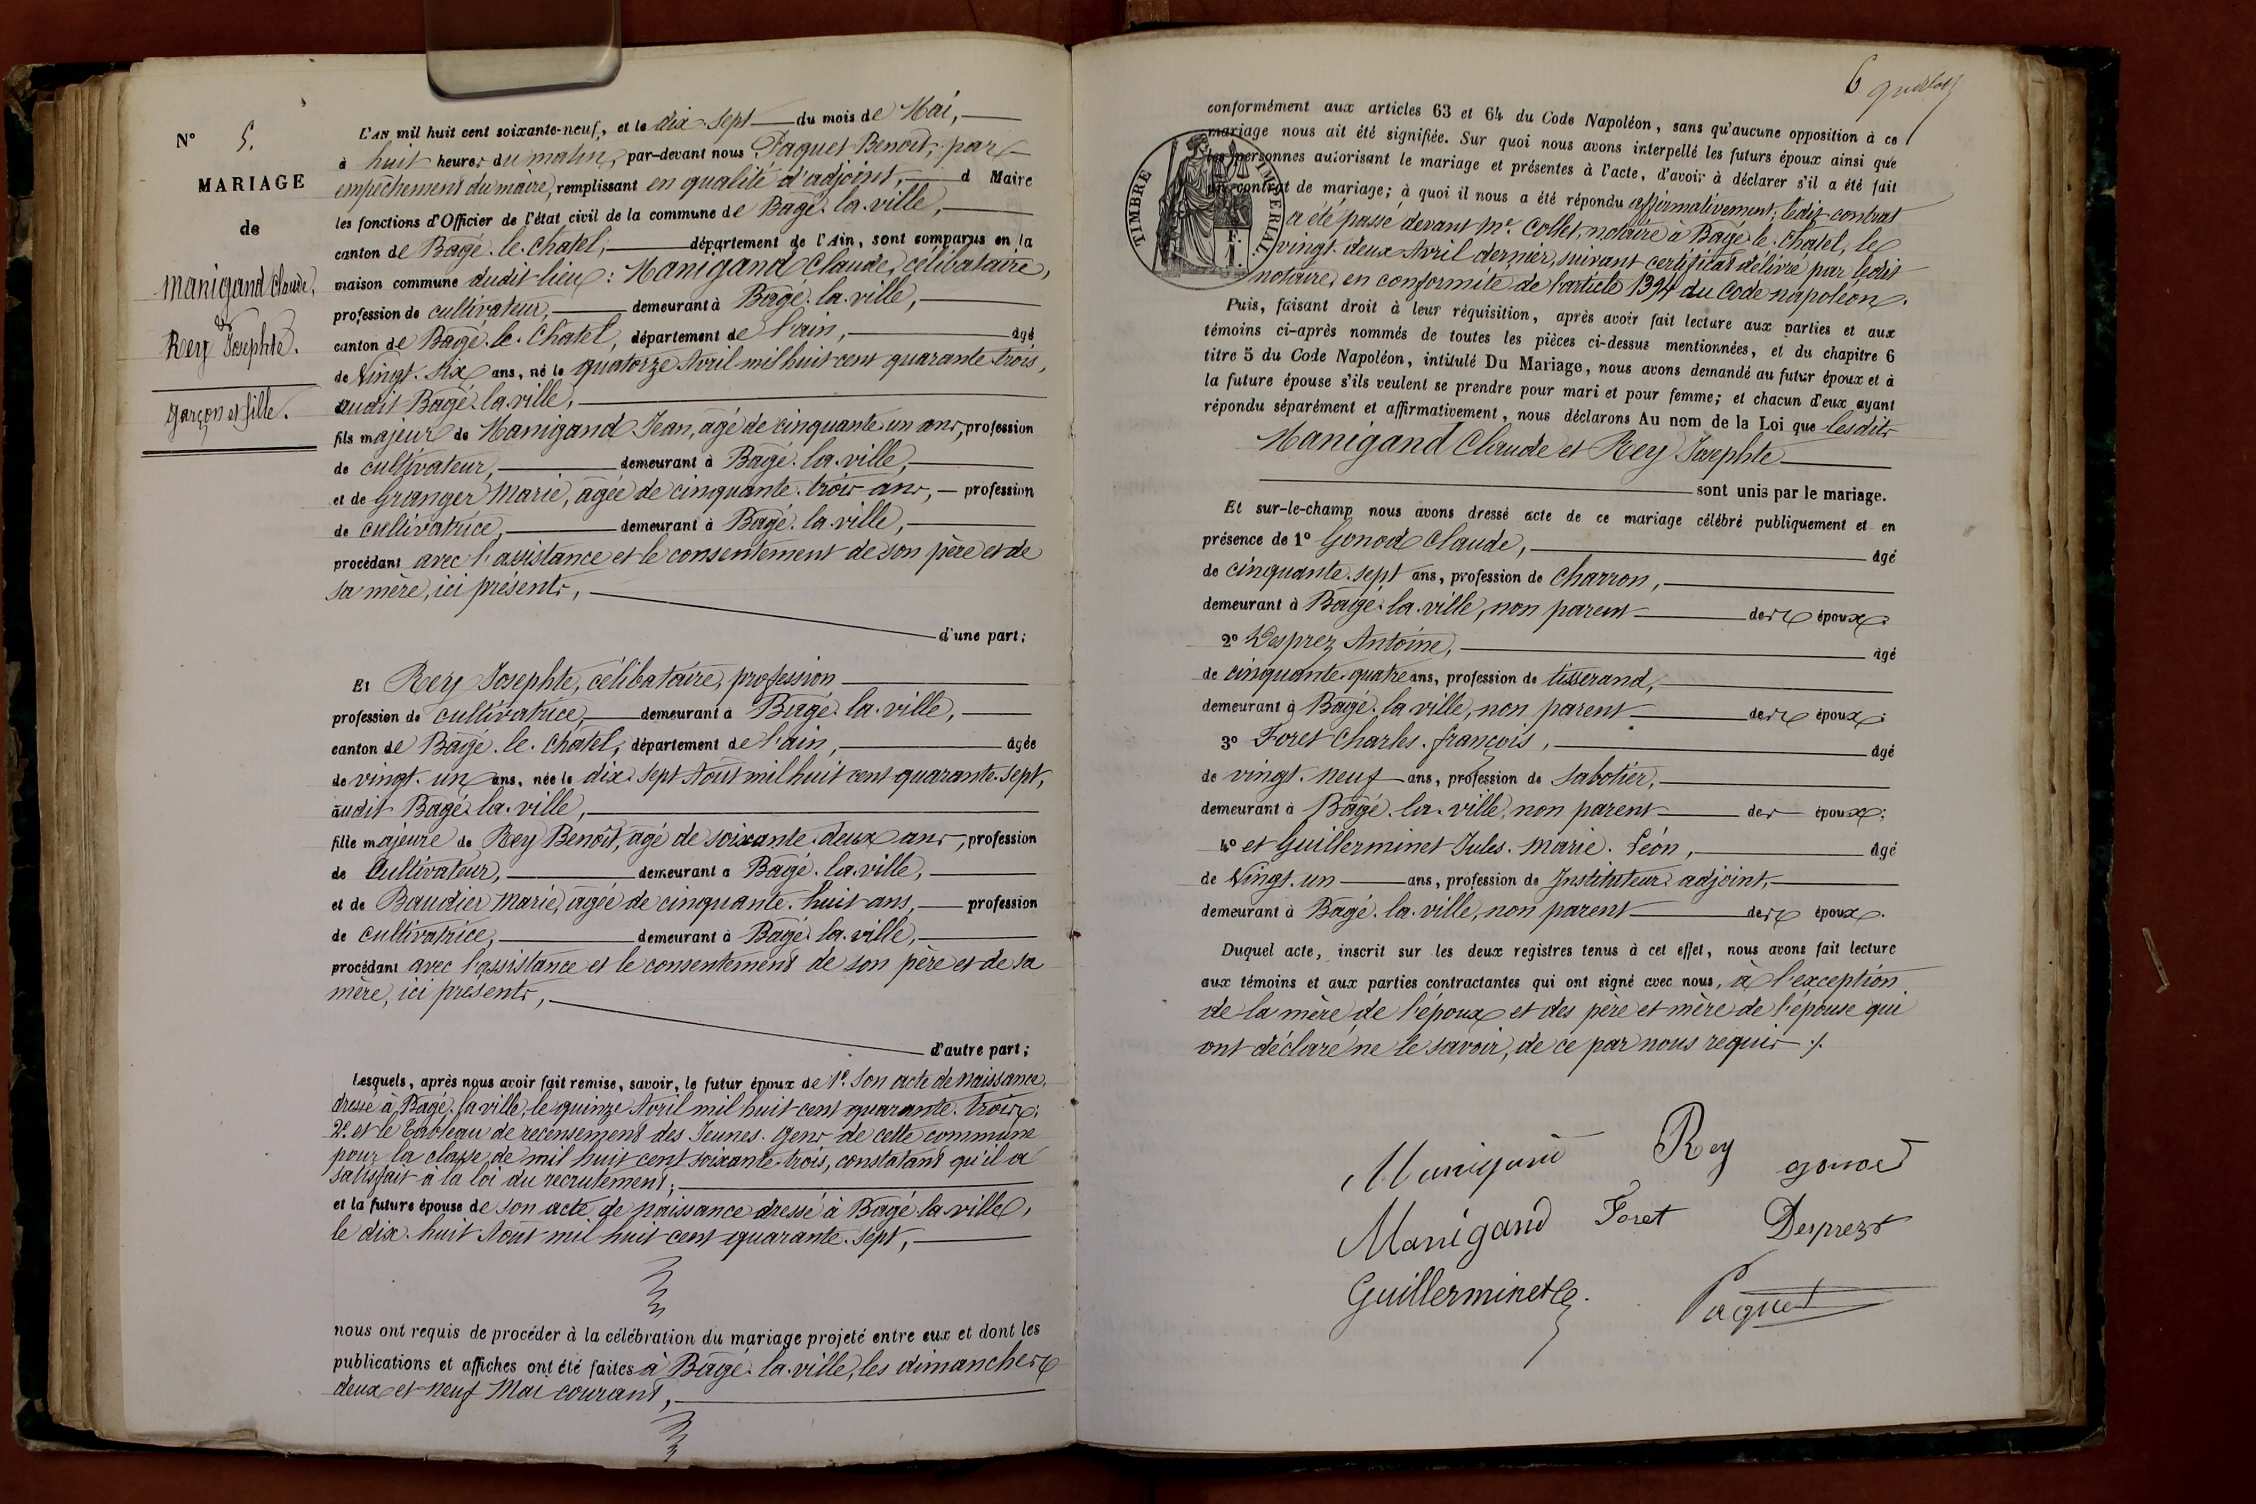 N° 5.
MARIAGE
de
Manigand Claude,
&
Rey Josephte.
garçon et fille.
L'AN mil huit cent soixante-neuf, et le dix-sept du mois de Mai,
à huit heures du matin, par-devant nous Paquet Benoit, par
empêchement du maire, remplissant en qualité d'adjoint, d Maire
les fonctions d'Officier de l'état civil de la commune de Bagé-la-ville,
canton de Bagé-le-Chatel, département de l'Ain, sont comparus en la
maison commune dudit lieu : Manigand Claude, célibataire,
profession de cultivateur, demeurant à Bagé-la-ville,
canton de Bagé-le-Chatel, département de l'ain, âgé
de Vingt-six ans, né le quatorze Avril mil huit cent quarante-trois,
audit Bagé-la-ville,
fils majeur de Manigand Jean, âgé de cinquante-un ans, profession
de cultivateur, demeurant à Bagé-la-ville,
et de Granger Marie, âgée de cinquante-trois ans, profession
de cultivatrice, demeurant à Bagé-la-ville,
procédant avec l'assistance et le consentement de son père et de
sa mère, ici présents,
d'une part;
Et Rey Josephte, célibataire, profession
profession de cultivatrice, demeurant à Bagé-la-ville,
canton de Bagé-le-châtel, département de l'ain, âgée
de vingt-un ans, née le dix-sept Août mil huit cent quarante-sept,
audit Bagé-la-ville,
fille majeure de Rey Benoît, âgé de soixante-deux ans, profession
de Cultivateur, demeurant à Bagé-la-ville,
et de Baudier Marie, âgée de cinquante-huit ans, profession
de cultivatrice, demeurant à Bagé-la-ville,
procédant avec l'assistance et le consentement de son père et de sa
mère, ici présents,
d'autre part;
Lesquels, après nous avoir fait remise, savoir, le futur époux de 1°. Son acte de naissance,
dressé à Bagé-la-ville, le quinze Avril mil huit cent quarante-trois;
2°. et le Tableau de recensement des Jeunes-gens de cette commune
pour la classe de mil huit cent soixante-trois, constatant qu'il a
satisfait à la loi du recrutement;
et la future épouse de son acte de naissance dressé à Bagé-la-ville,
le dix-huit Août mil huit cent quarante-sept,
nous ont requis de procéder à la célébration du mariage projeté entre eux et dont les
publications et affiches ont été faites à Bâgé-la-ville, les dimanches
deux et neuf Mai courant,
6
conformément aux articles 63 et 64 du Code Napoléon, sans qu'aucune opposition à ce
mariage nous ait été signifiée. Sur quoi nous avons interpellé les futurs époux ainsi que
les personnes autorisant le mariage et présentes à l'acte, d'avoir à déclarer s'il a été fait
un contrat de mariage; à quoi il nous a été répondu affirmativement; ledit contrat
a été passé devant Me. Collet, notaire à Bâgé-le-Châtel, le
vingt-deux Avril dernier, suivant certificat délivré par ledit
notaire, en conformité de l'article 1394 du Code napoléon.
TIMBRE IMPERIAL
Puis, faisant droit à leur réquisition, après avoir fait lecture aux parties et aux
témoins ci-après nommés de toutes les pièces ci-dessus mentionnées, et du chapitre 6
titre 5 du Code Napoléon, intitulé Du Mariage, nous avons demandé au futur époux et à
la future épouse s'ils veulent se prendre pour mari et pour femme; et chacun d'eux ayant
répondu séparément et affirmativement, nous déclarons Au nom de la Loi que lesdits
Manigand Claude et Rey Josephte
sont unis par le mariage.
Et sur-le-champ nous avons dressé acte de ce mariage célébré publiquement et en
présence de 1° Gonod Claude, âgé
de cinquante-sept ans, profession de charron,
demeurant à Bâgé-la-ville, non parent des époux;
2° Desprez Antoine, âgé
de cinquante-quatre ans, profession de tisserand,
demeurant à Bagé-la-ville, non parent des époux;
3° Foret Charles-françois, âgé
de vingt-neuf ans, profession de sabotier,
demeurant à Bâgé-la-ville, non parent des époux;
4° et Guillerminet Jules-Marie-Léon, âgé
de Vingt-un ans, profession de Instituteur-adjoint,
demeurant à Bâgé-la-ville, non parent des époux.
Duquel acte, inscrit sur les deux registres tenus à cet effet, nous avons fait lecture
aux témoins et aux parties contractantes qui ont signé avec nous, à l'exception
de la mère de l'époux et des père et mère de l'épouse qui
ont déclaré ne le savoir, de ce par nous requis ./.
Manigand Rey gonod
Manigand Foret Desprezt
Guillerminet Paquet